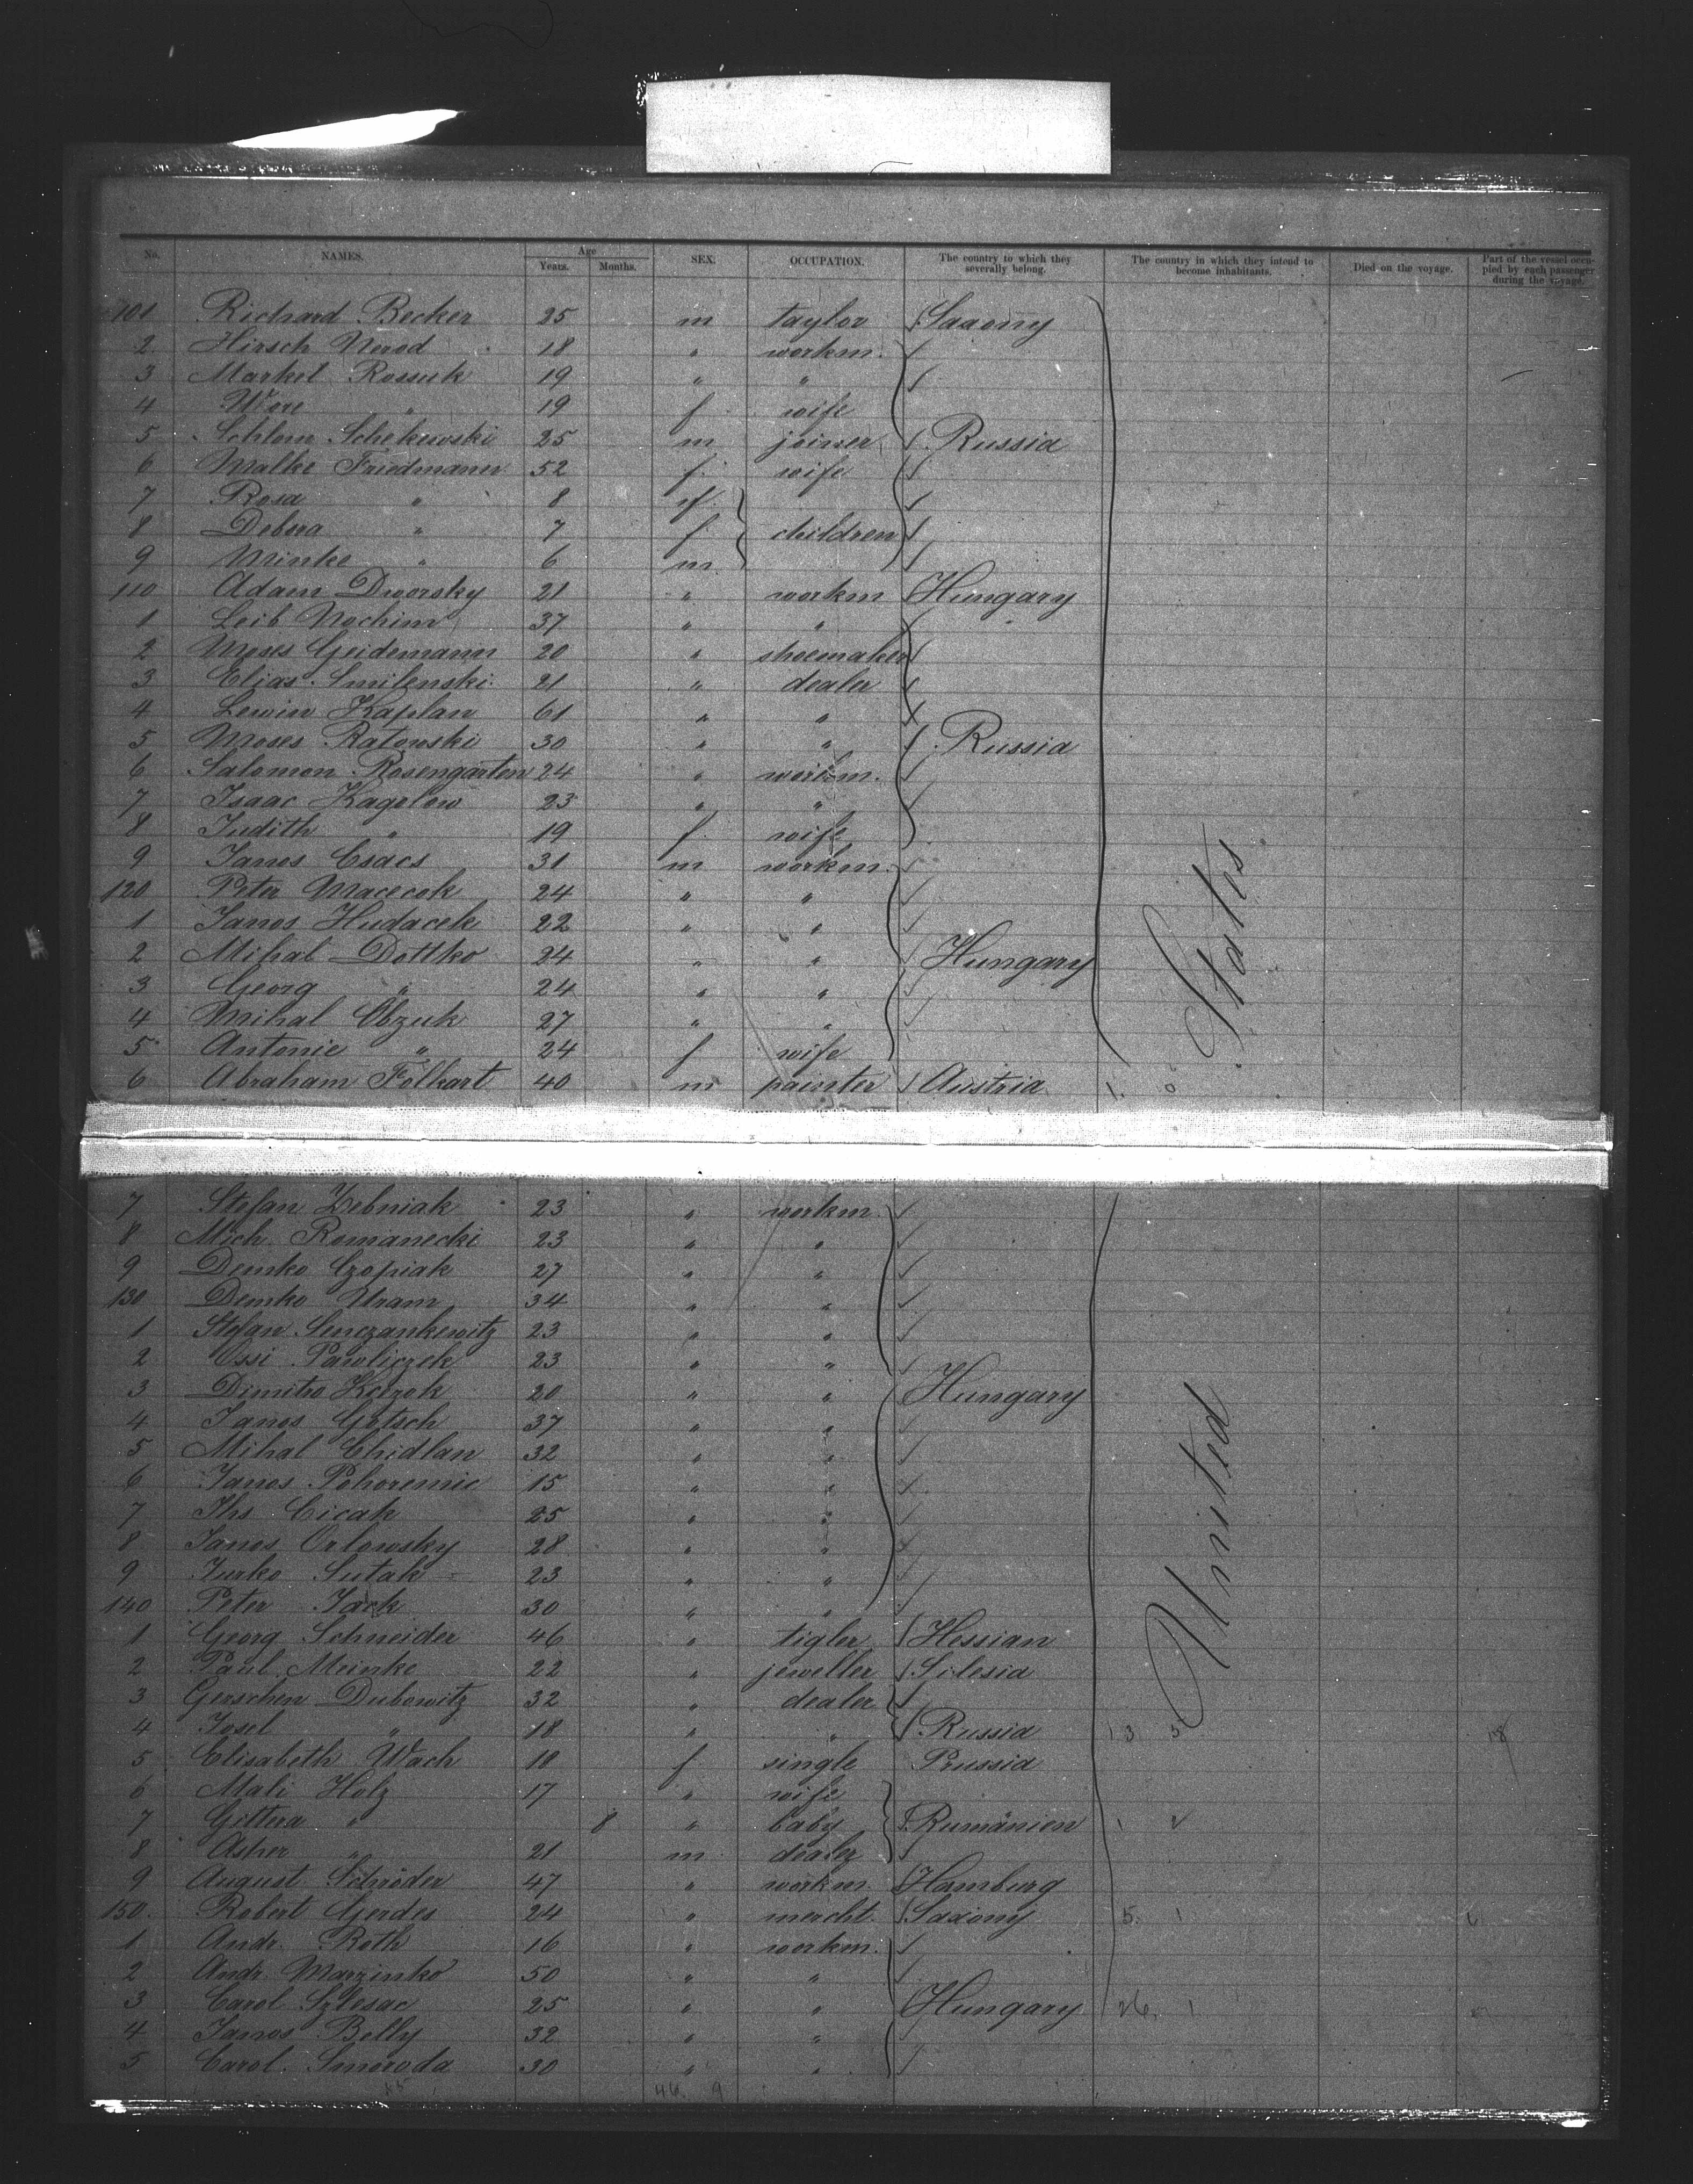 No. NAMES. Age Years. Months. SEX. OCCUPATION. The country to which they severally belong. The country in which they intend to become inhabitants. Died on the voyage. Part of the vessel occupied by each passenger during the voyage.
101 Richard Becker 25 m taylor Saxony
2 Hirsch Nerod 18 " workm.
3 Markel Rossuk 19 " "
4 Wore " 19 f wife
5 Schlom Schekewski 25 m joiner Russia
6 Malke Friedmann 52 f. wife
7 Rosa " 8 f.
8 Debora " 7 f. children
9 Minke " 6 m
110 Adam Dworsky 21 " workm Hungary
1 Leib Nochim 37 " "
2 Moses Geidemann 20 " shoemaker
3 Elias Smilenski 21 " dealer
4 Lewin Kaplan 61 " "
5 Moses Ratowski 30 " " Russia
6 Salomon Rosengarten 24 " workm.
7 Isaac Kagolow 23 " "
8 Judith " 19 f. wife
9 Janos Csacs 31 m workm.
120 Peter Macecok 24 " "
1 Janos Hudacek 22 " "
2 Mihal Dottko 24 " " Hungary
3 Georg " 24 " "
4 Mihal Obzuk 27 " "
5 Antonie " 24 f wife
6 Abraham Folkart 40 m painter Austria
7 Stefan Zebniak 23 " workm.
8 Mich. Romanecki 23 " "
9 Demko Czopiak 27 " "
130 Demko Uram 34 " "
1 Stefan Senczankewitz 23 " "
2 Ossi Pawliczek 23 " "
3 Dimitro Korzok 20 " " Hungary
4 Janos Gotsch 37 " "
5 Mihal Chidlan 32 " "
6 Janos Pohoremic 15 " "
7 Ihs Cicak 25 " "
8 Janos Orlowsky 28 " "
9 Jurko Sutak 23 " "
140 Peter Jack 30 " "
1 Georg Schneider 46 " tigler Hessian
2 Paul Meinke 22 " jeweller Silesia
3 Gerschen Dubowitz 32 " dealer
4 Josel " 18 " " Russia
5 Elisabeth Wach 18 f single Prussia
6 Mali Holz 17 " wife
7 Gittera " 8 " baby Rumänien
8 Asher " 21 m dealer
9 August Schröder 47 " workm. Hamburg
150 Robert Gerdes 24 " mercht. Saxony
1 Andr. Roth 16 " workm.
2 Andr. Marzinko 50 " "
3 Carol Szlesac 25 " " Hungary
4 Janos Belly 32 " "
5 Carol Smoroda 30 " "
United States